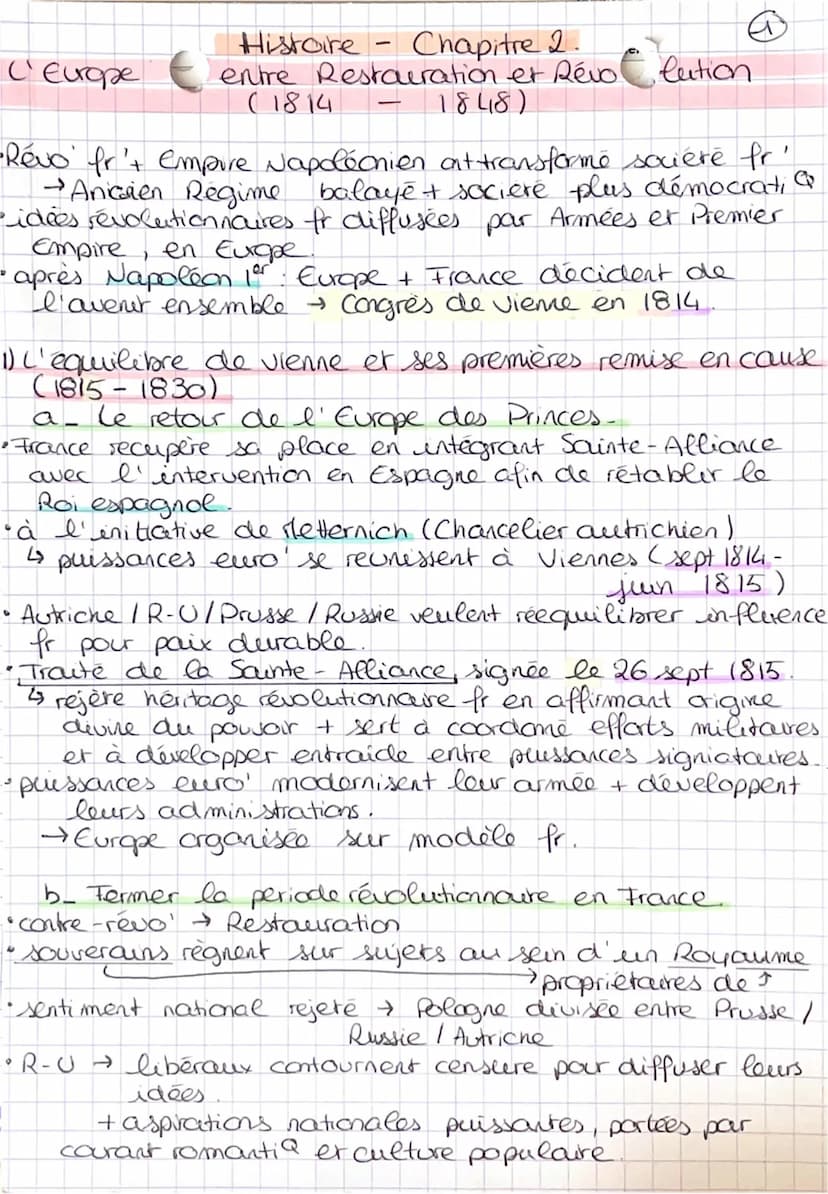 1
Histoire - Chapitre 2.
L'Europe entre Restauration et Révolution
(1814 - 1848)
• Révo' fr' + Empire Napoléonien ont transformé société fr'
→ Ancien Régime balayé + société plus démocratiQ
• idées révolutionnaires fr diffusées par Armées et Premier
Empire, en Europe.
• après Napoléon 1er : Europe + France décident de
l'avenir ensemble → Congrès de Vienne en 1814.
1) L'équilibre de Vienne et ses premières remise en cause
(1815 - 1830)
a - Le retour de l'Europe des Princes -
• France recupère sa place en intégrant Sainte-Alliance
avec l'intervention en Espagne afin de rétablir le
Roi espagnol.
• à l'initiative de Metternich (Chancelier autrichien)
↳ puissances euro' se reunissent à Viennes (sept 1814 -
juin 1815)
• Autriche / R-U / Prusse / Russie veulent réequilibrer influence
fr pour paix durable.
• Traité de la Sainte-Alliance, signée le 26 sept 1815.
↳ rejère héritage révolutionnaire fr en affirmant origine
divine du pouvoir + sert à coordoné efforts militaires
et à développer entraide entre puissances signiataires.
• puissances euro' modernisent leur armée + développent
leurs administrations.
→ Europe organisée sur modèle fr.
b - Fermer la periode révolutionnaire en France.
• contre-révo' → Restauration
• souverains règnent sur sujets au sein d'un Royaume
→ propriétaires de ↑
• sentiment national rejeté → Pologne divisée entre Prusse /
Russie / Autriche
• R-U → libéraux contournent censure pour diffuser leurs
idées.
+ aspirations nationales puissantes, portées par
courant romantiQ et culture populaire.